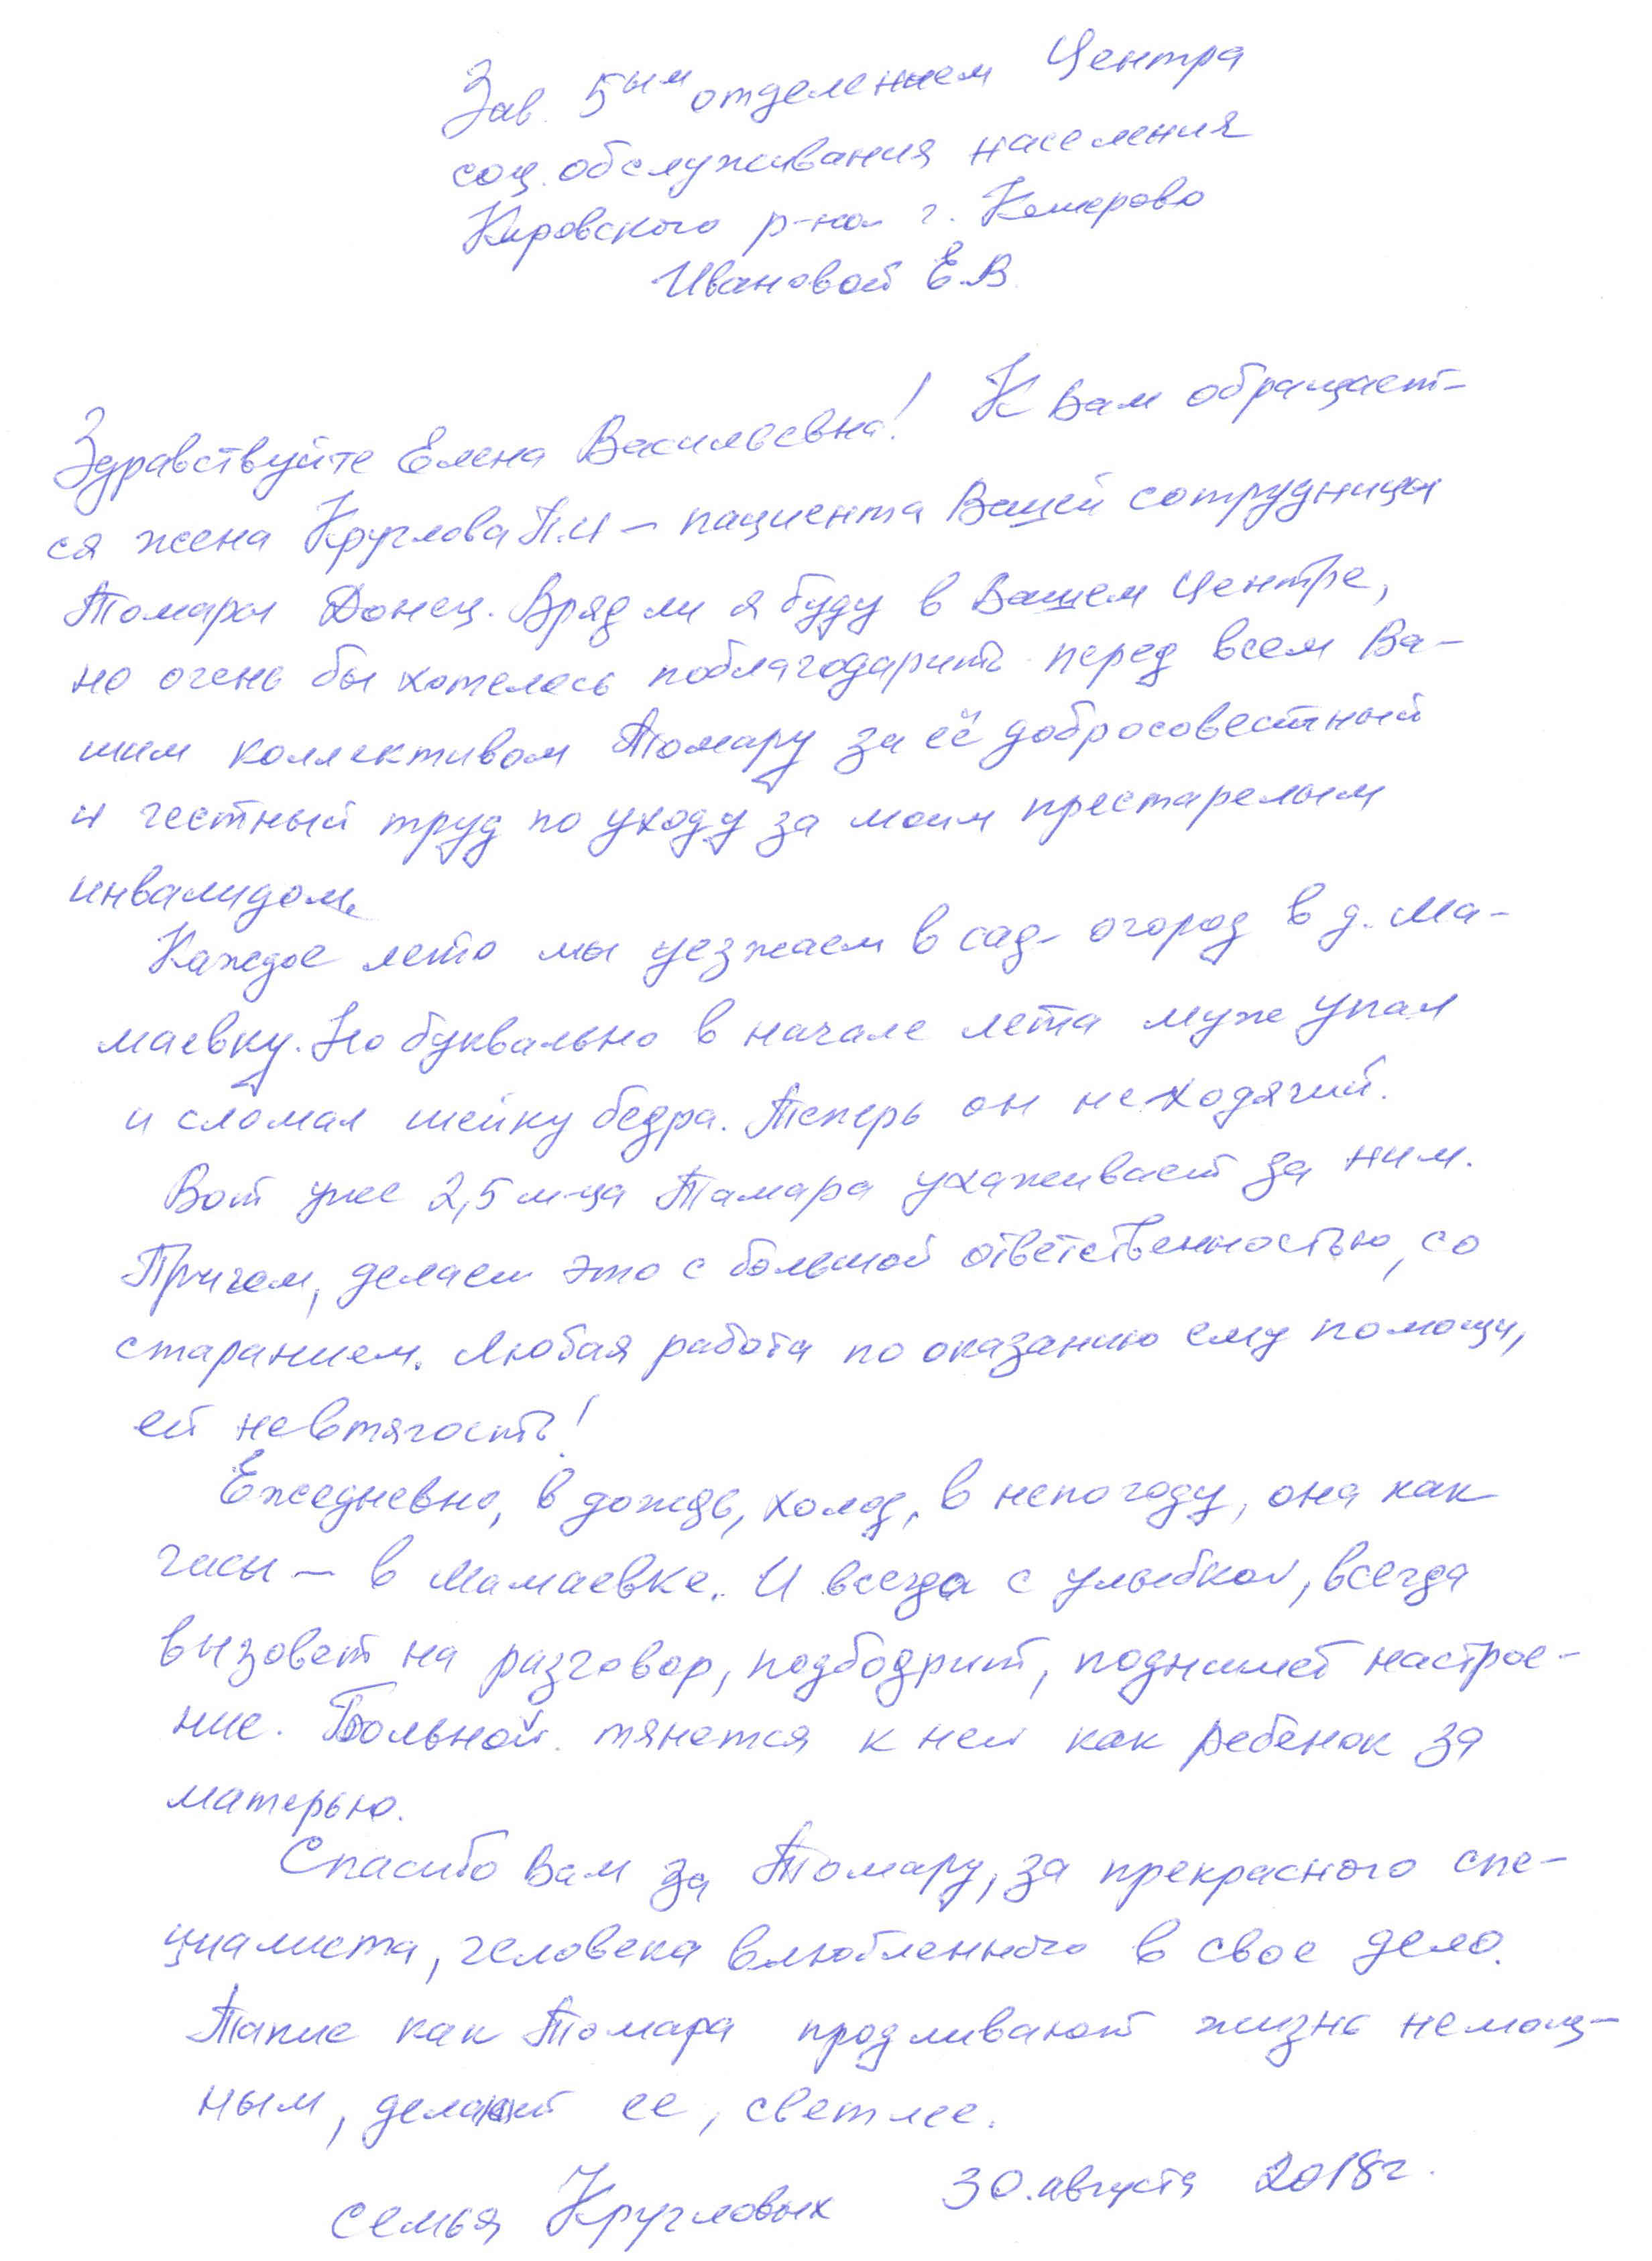 Зав. 5ым отделением Центра
соц. обслуживания населения
Кировского р-на г. Кемерово
Ивановой Е.В.
Здравствуйте Елена Васильевна! К Вам обращает-
ся жена Круглова П.И – пациента Вашей сотрудницы
Тамары Донец. Вряд ли я буду в Вашем Центре,
но очень бы хотелось поблагодарить перед всем Ва-
шим коллективом Тамару за её добросовестный
и честный труд по уходу за моим престарелым
инвалидом.
Каждое лето мы уезжаем в сад-огород в д. Ма-
маевку. Но буквально в начале лета муж упал
и сломал шейку бедра. Теперь он не ходячий.
Вот уже 2,5 м-ца Тамара ухаживает за ним.
Причем, делает это с большой ответственностью, со
старанием. Любая работа по оказанию ему помощи,
ей невтягость!
Ежедневно, в дождь, холод, в непогоду, она как
часы – в Мамаевке. И всегда с улыбкой, всегда
вызовет на разговор, подбодрит, поднимет настрое-
ние. Больной тянется к ней как ребенок за
матерью.
Спасибо Вам за Тамару, за прекрасного спе-
циалиста, человека влюбленного в свое дело.
Такие как Тамара продливают жизнь немощ-
ным, делают ее, светлее.
семья Кругловых 30.августа 2018г.